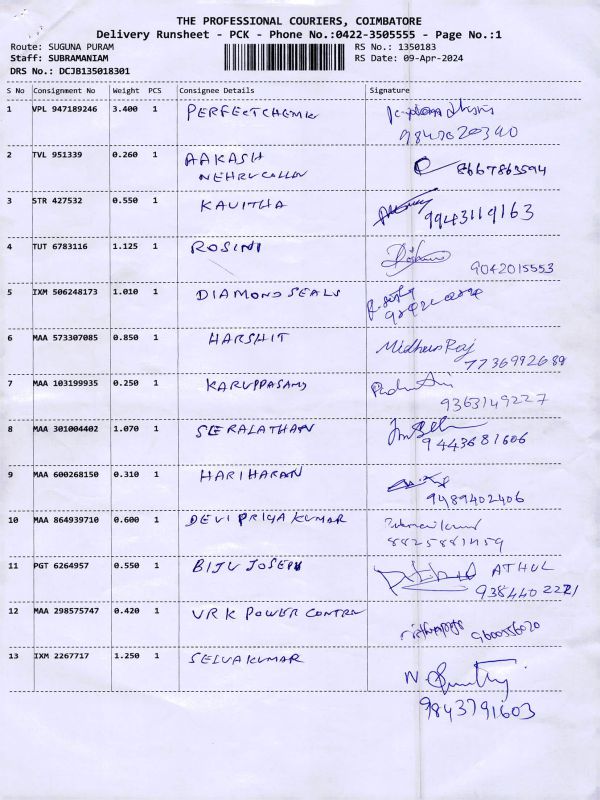 THE PROFESSIONAL COURIERS, COIMBATORE
Delivery Runsheet - PCK - Phone No.:0422-3505555 - Page No.:1
Route: SUGUNA PURAM RS No.: 1350183
Staff: SUBRAMANIAM RS Date: 09-Apr-2024
DRS No.: DCJB135018301
S No Consignment No Weight PCS Consignee Details Signature
1 VPL 947189246 3.400 1 PERFECTCHEMIK
2 TVL 951339 0.260 1 AAKASH 8667863594
NEHRUCOLLEN
3 STR 427532 0.550 1 KAVITHA 9943119163
4 TUT 6783116 1.125 1 ROSINI
9042015553
5 IXM 506248173 1.010 1 DIAMOND SEALS
6 MAA 573307085 0.850 1 HARSHIT Midhun Raj
7736992689
7 MAA 103199935 0.250 1 KARUPPASAMY
9363149227
8 MAA 301004402 1.070 1 SEERALATHAN
9443681606
9 MAA 600268150 0.310 1 HARIHARAN
9489402406
10 MAA 864939710 0.600 1 DEVI PRIYA KUMAR
8825881459
11 PGT 6264957 0.550 1 BIJU JOSEPH ATHUL
9384402221
12 MAA 298575747 0.420 1 VRK POWER CONTRN
9600556020
13 IXM 2267717 1.250 1 SELVAKUMAR
9843791603